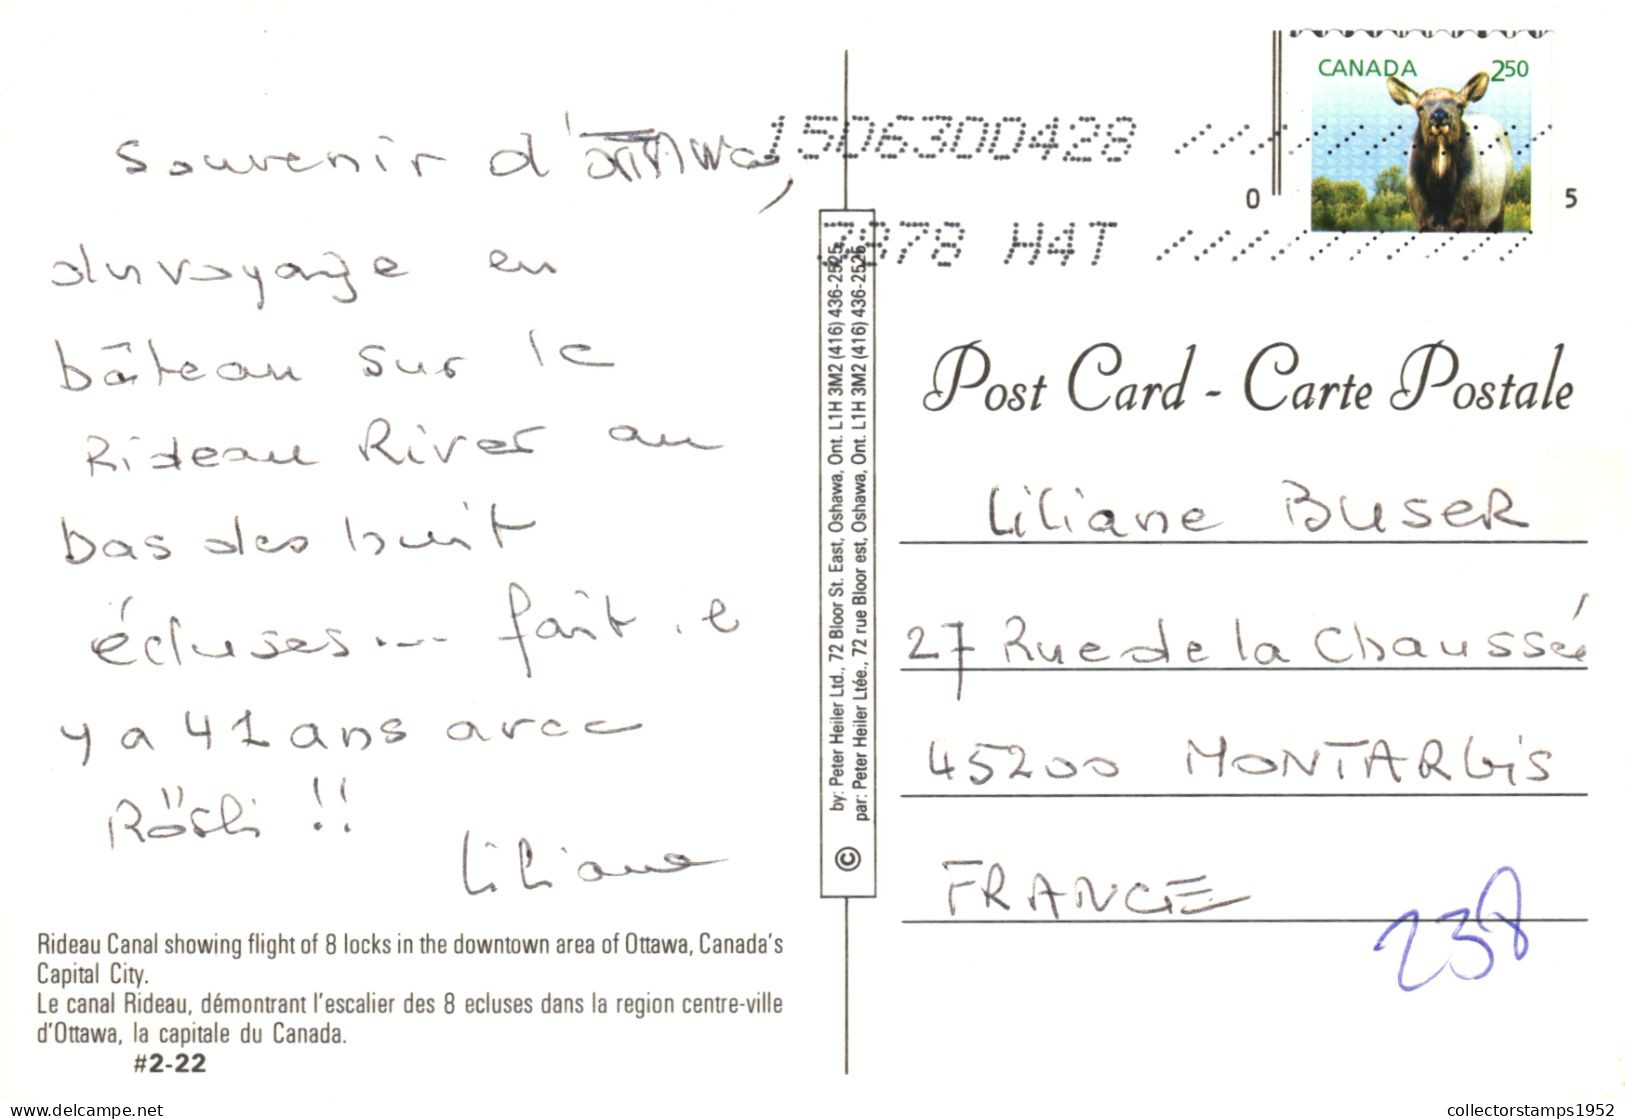 Souvenir d'OTTAWA,
du voyage en
bâteau sur le
Rideau River au
bas des huit
écluses... fait il
y a 41 ans avec
Rösli !!
Liliane
Rideau Canal showing flight of 8 locks in the downtown area of Ottawa, Canada's
Capital City.
Le canal Rideau, démontrant l'escalier des 8 ecluses dans la region centre-ville
d'Ottawa, la capitale du Canada.
#2-22
by: Peter Heiler Ltd., 72 Bloor St. East, Oshawa, Ont. L1H 3M2 (416) 436-2525
par: Peter Heiler Ltée., 72 rue Bloor est, Oshawa, Ont. L1H 3M2 (416) 436-2525
©
CANADA 250
0 5
15063DD428
7878 H4T
Post Card - Carte Postale
Liliane BUSER
27 Rue de la Chaussée
45200 MONTARGIS
FRANCE
238
collectorstamps1952